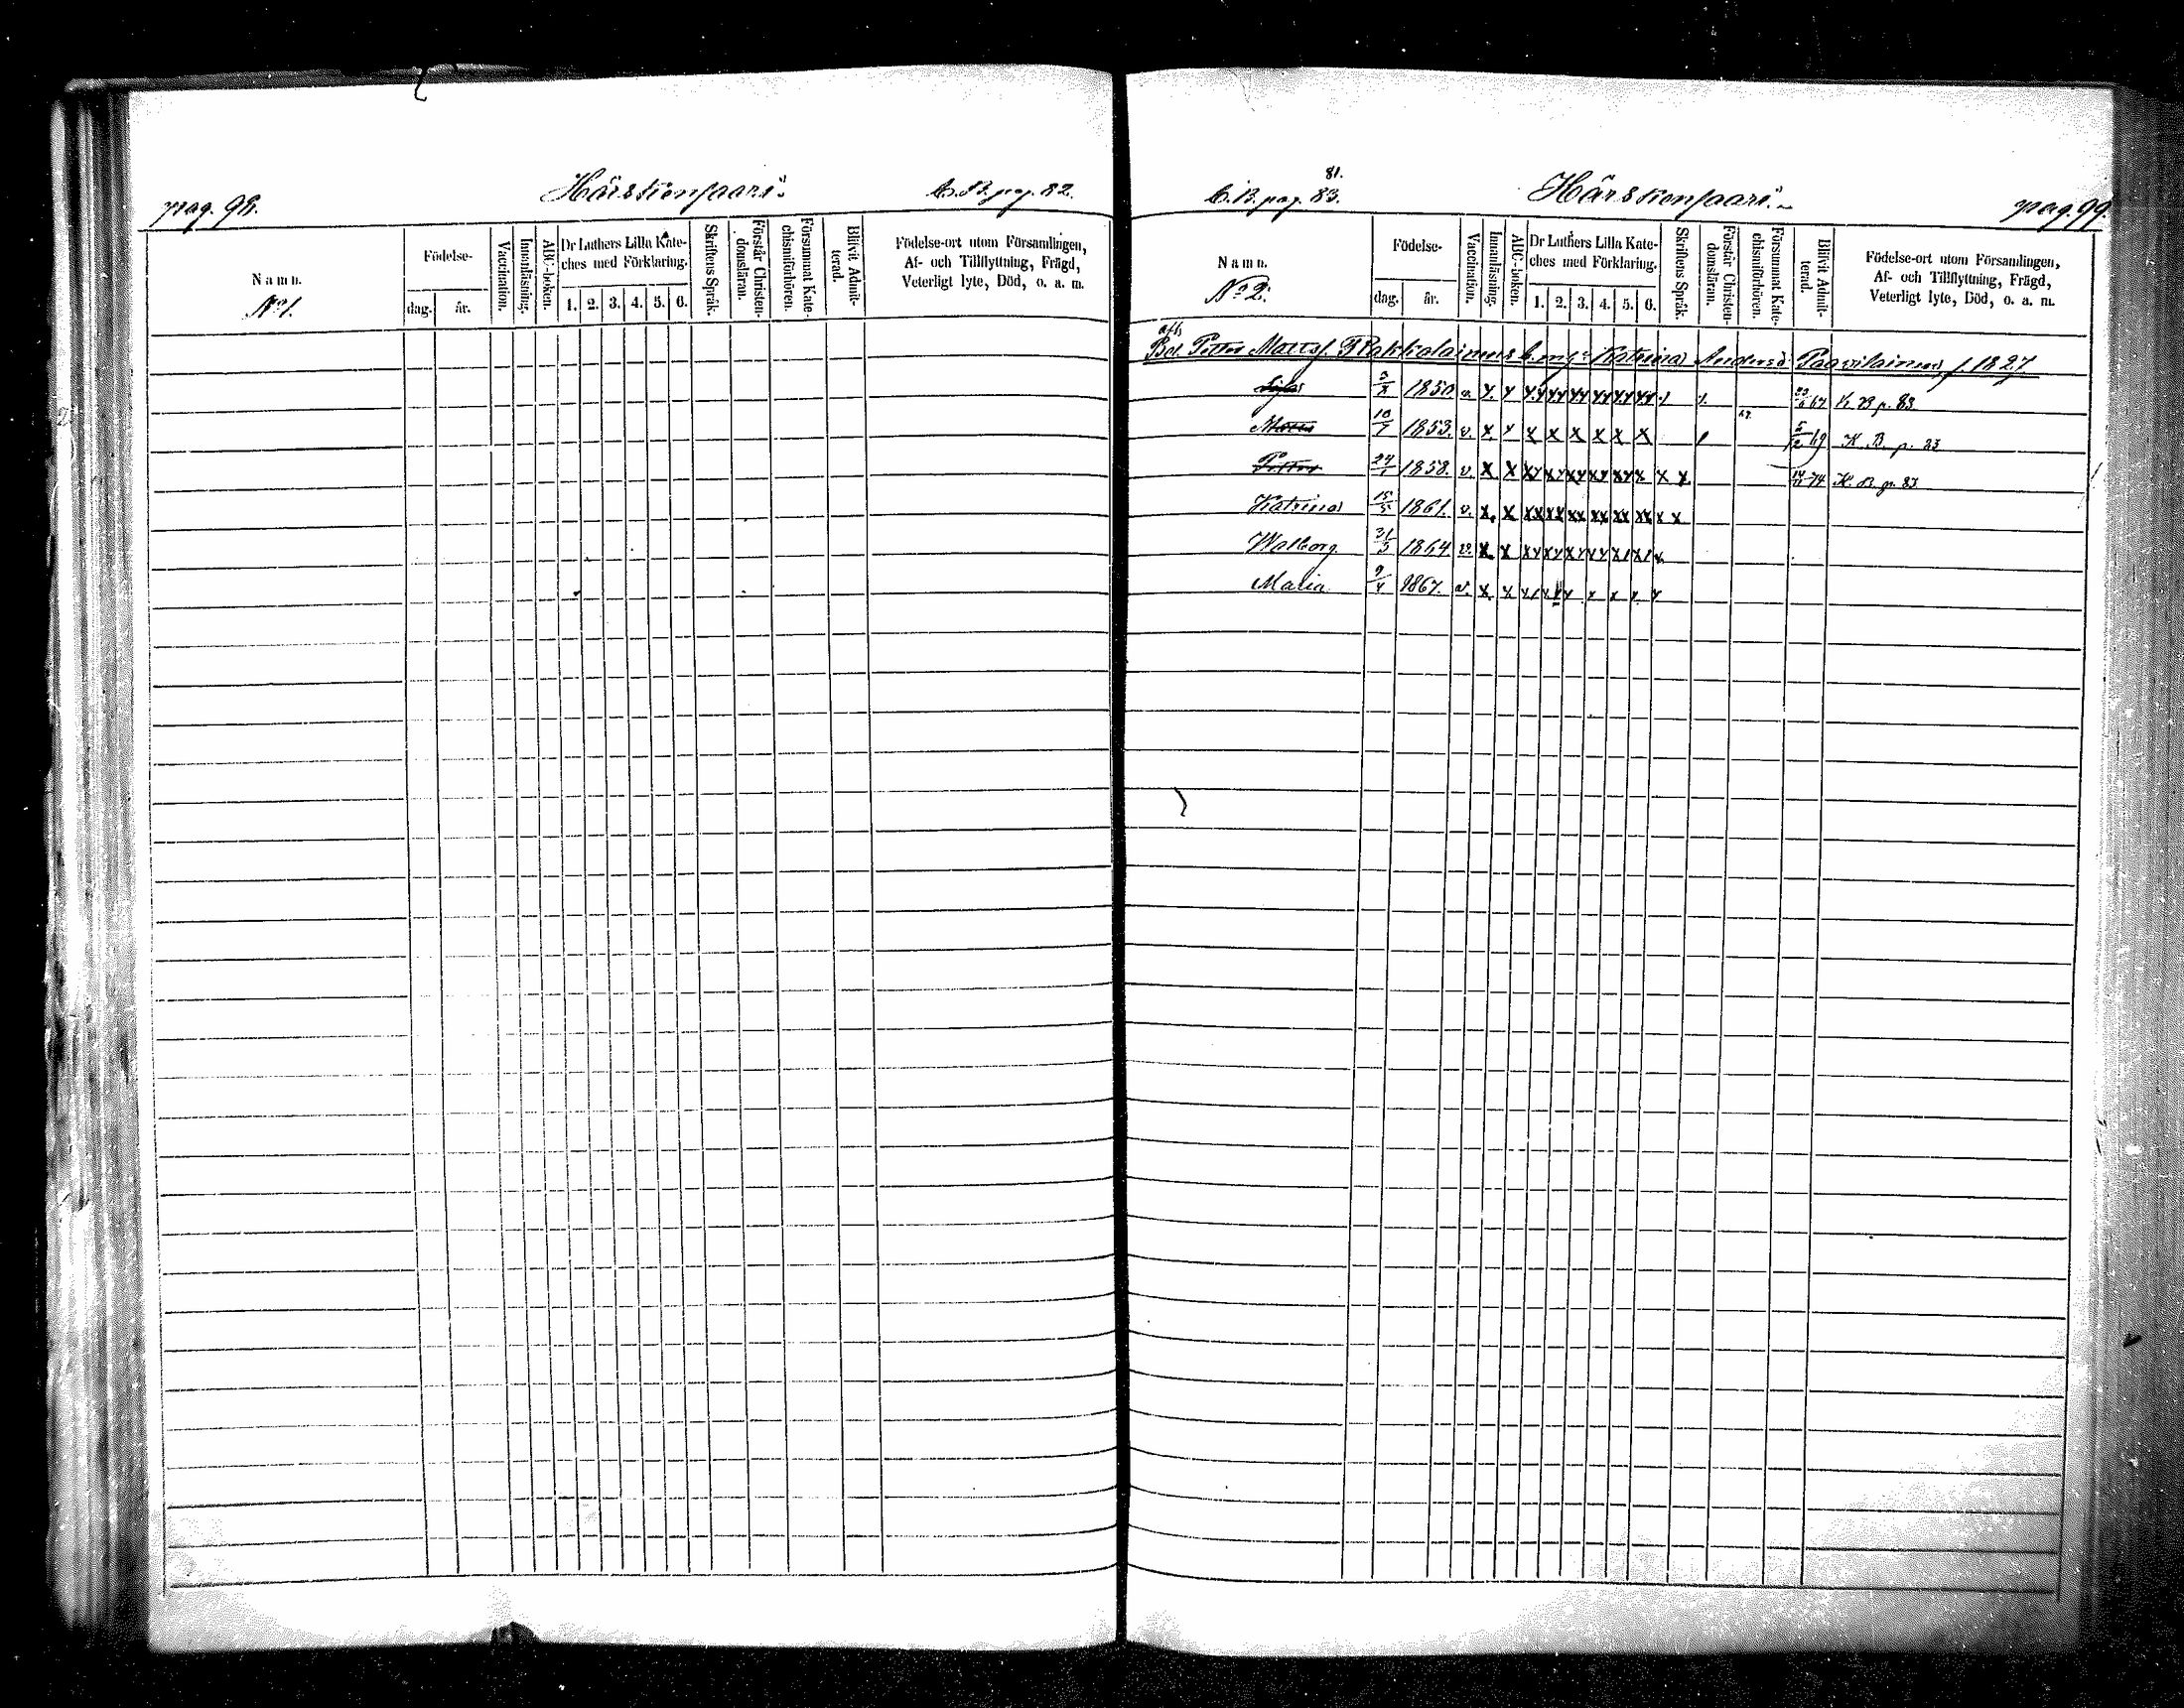 pag. 98.
Härskensaari.
C. B. pag. 82.
Namn.
No 1.
Födelse-
dag.
år.
Vaccination.
Innanläsning.
ABC-boken.
Dr Luthers Lilla Kate-
ches med Förklaring.
1. 2. 3. 4. 5. 6.
Skriftens Språk.
Förstår Christen-
domsläran.
Försummat Kate-
chismiförhören.
Blifvit Admit-
terad.
Födelse-ort utom Församlingen,
Af- och Tillflyttning, Frägd,
Veterligt lyte, Död, o. a. m.
81.
C. B. pag. 83.
Härskensaari.
pag. 99.
Namn.
No 2.
Födelse-
dag.
år.
Vaccination.
Innanläsning.
ABC-boken.
Dr Luthers Lilla Kate-
ches med Förklaring.
1. 2. 3. 4. 5. 6.
Skriftens Språk.
Förstår Christen-
domsläran.
Försummat Kate-
chismiförhören.
Blifvit Admit-
terad.
Födelse-ort utom Församlingen,
Af- och Tillflyttning, Frägd,
Veterligt lyte, Död, o. a. m.
Petter Mattss. Katrina Andersd. f. 1827
1850. v. 67 K. B. p. 83
Matts 10/7 1853. v. x x x x x x x 5/2 69 K. B. p. 83
Petter 24/1 1858. v. x x x x 74 K. B. p. 83
Katrina 15/5 1861. v. x x xx xx xx xx xx xx x x
Walborg 31/3 1864 v. x x
Maria 9/4 1867. v. x x